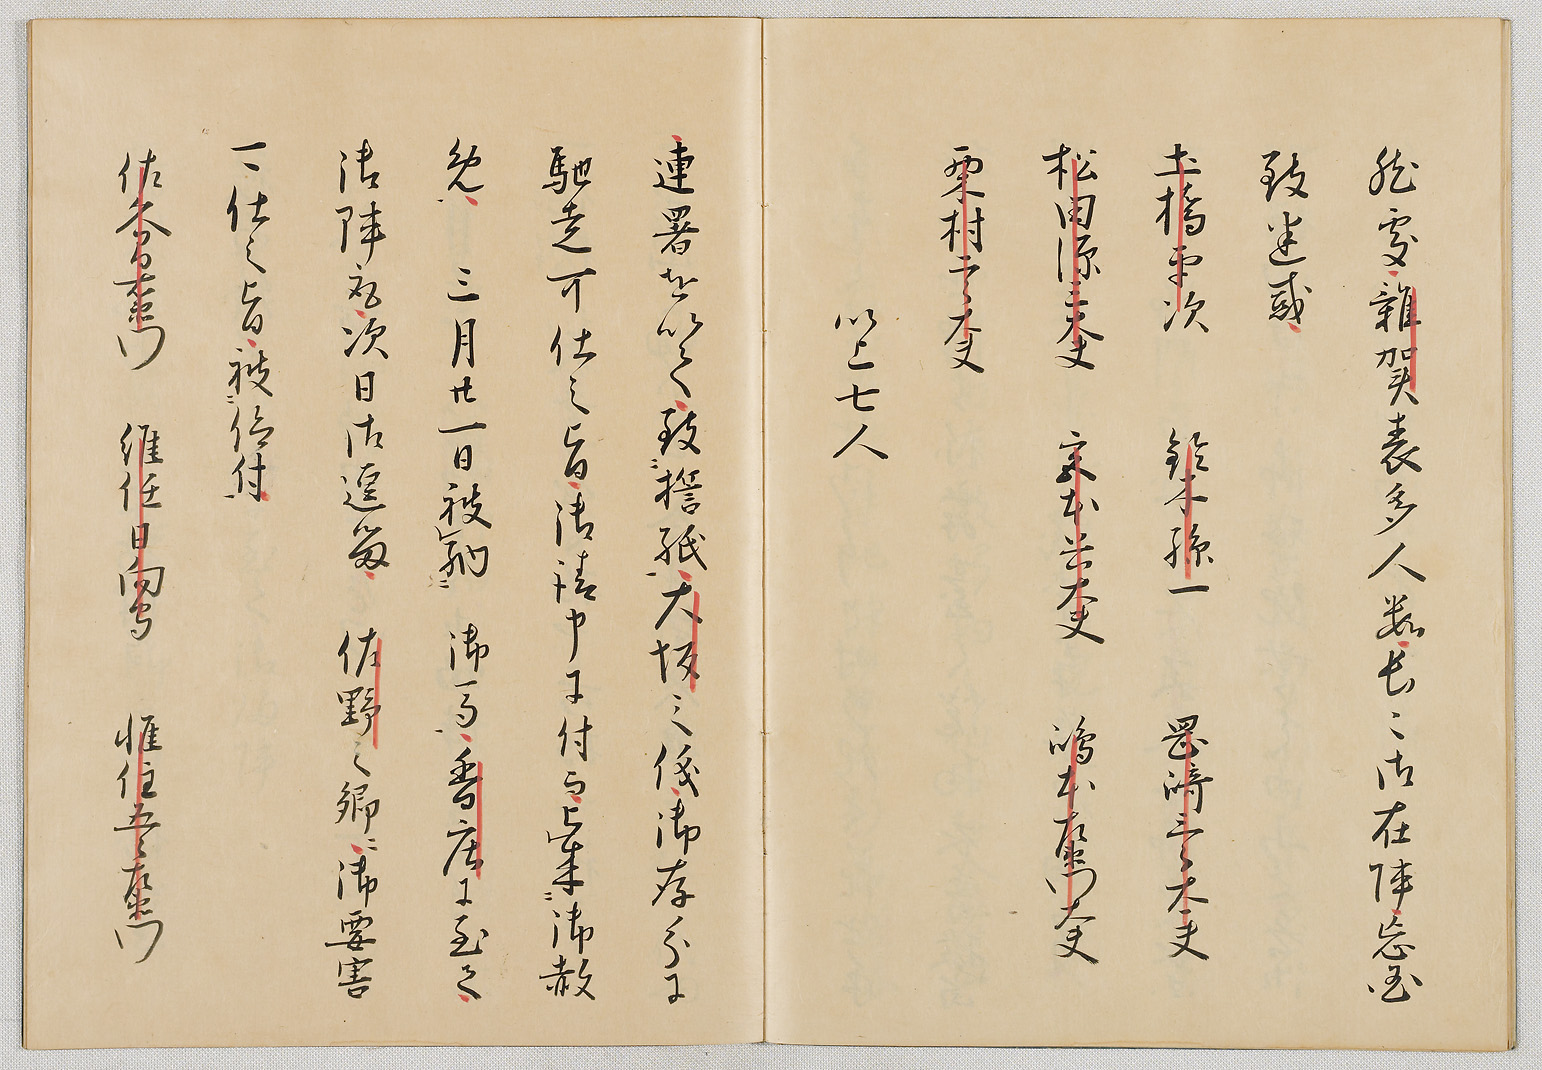 然処雑賀表多人数長〻御在陣忘国
致迷惑
土橋平次　鈴木孫一　岡崎三郎大夫
松田源三大夫　宮本兵大夫　嶋本左衛門大夫
栗村二郎大夫
以上七人
連署を以て致誓紙大坂之儀御存分に
馳走可仕之旨御請申に付而被成御赦
免　三月廿一日被納　御馬香庄に至て
御陣被居次日御逗留　佐野之郷ニ御要害
可仕之旨被仰付
佐久間右衛門　維任日向守　惟住五郎左衛門